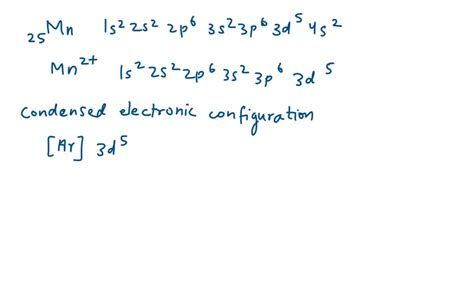 ₂₅Mn 1s² 2s² 2p⁶ 3s² 3p⁶ 3d⁵ 4s²
Mn²⁺ 1s² 2s² 2p⁶ 3s² 3p⁶ 3d⁵
Condensed electronic configuration
[Ar] 3d⁵